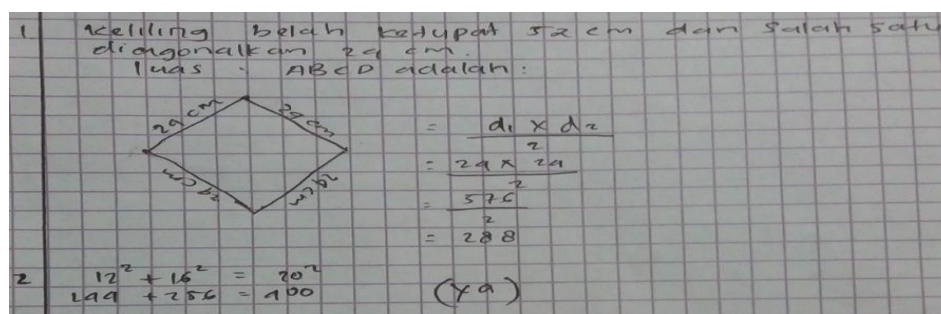 1 Keliling belah ketupat 52 cm dan salah satu
diagonalkan 24 cm.
luas : ABCD adalah :
24 cm 24 cm
24 cm 24 cm
= d1 x d2
2
= 24 x 24
2
= 576
2
= 288
2 12² + 16² = 20²
144 + 256 = 400 (ya)